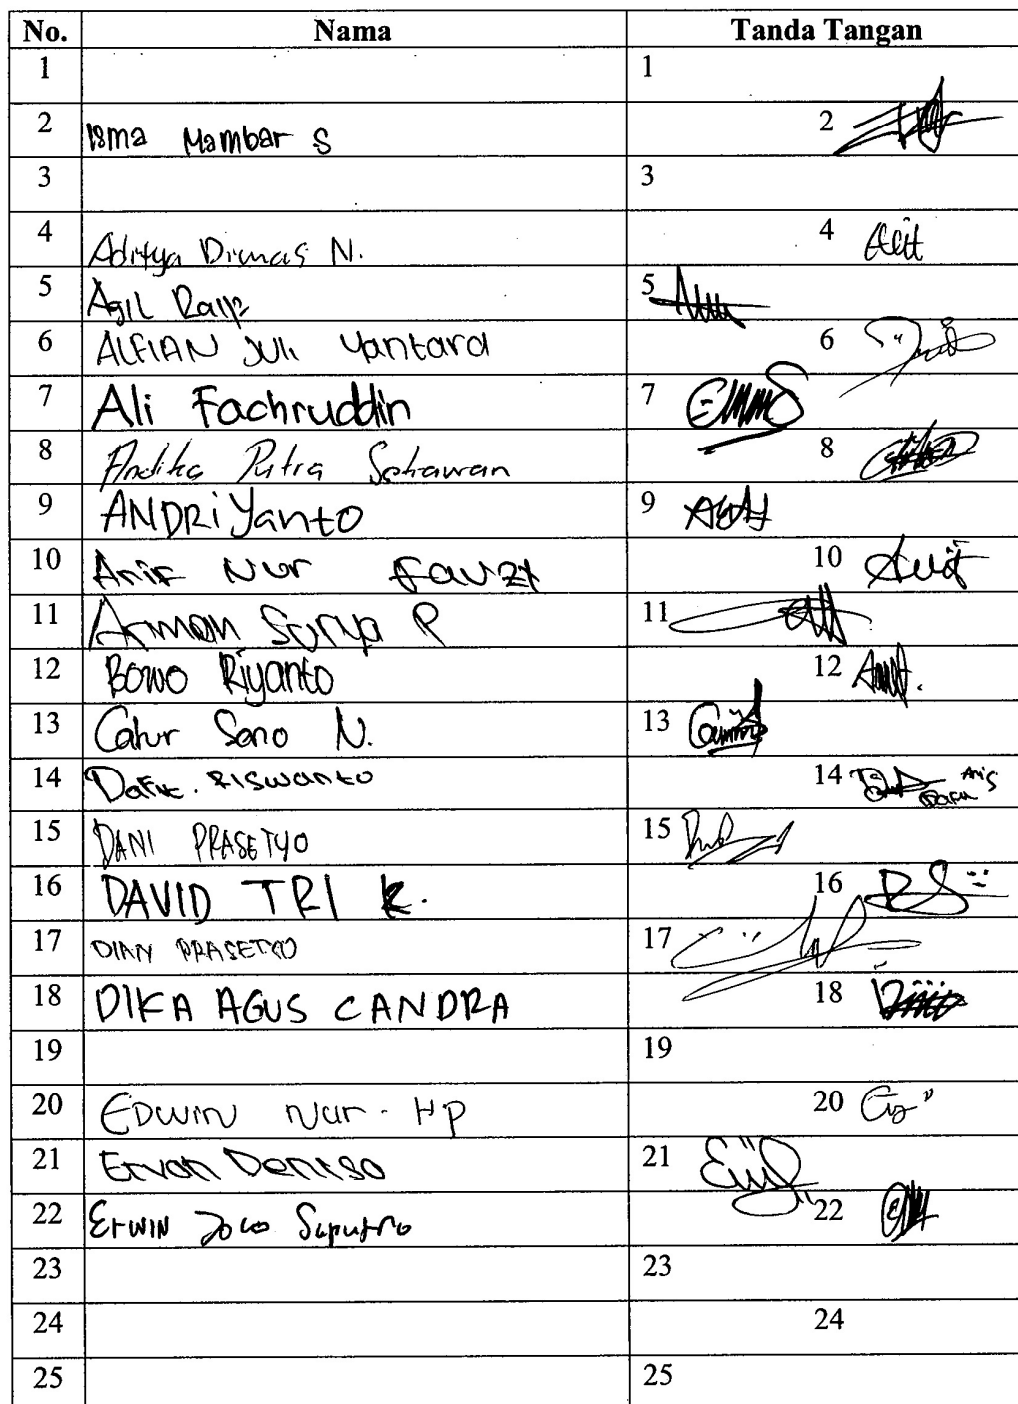 No. Nama Tanda Tangan
1 1
2 Isma Mambar S 2
3 3
4 Aditya Dimas N. 4
5 Agil 5
6 ALFIAN JULI Yantara 6
7 Ali Fachruddin 7
8 Andika Putra Setiawan 8
9 ANDRiYanto 9
10 Arif Nur Fauzi 10
11 Arman Surya P 11
12 Bowo Riyanto 12
13 Catur Seno N. 13
14 Riswanto 14
15 DANI PRASETYO 15
16 DAVID TRI K. 16
17 DIAN PRASETYO 17
18 DIKA AGUS CANDRA 18
19 19
20 EDWIN Nur. HP 20
21 Ervan Denisa 21
22 Erwin Joko Saputro 22
23 23
24 24
25 25